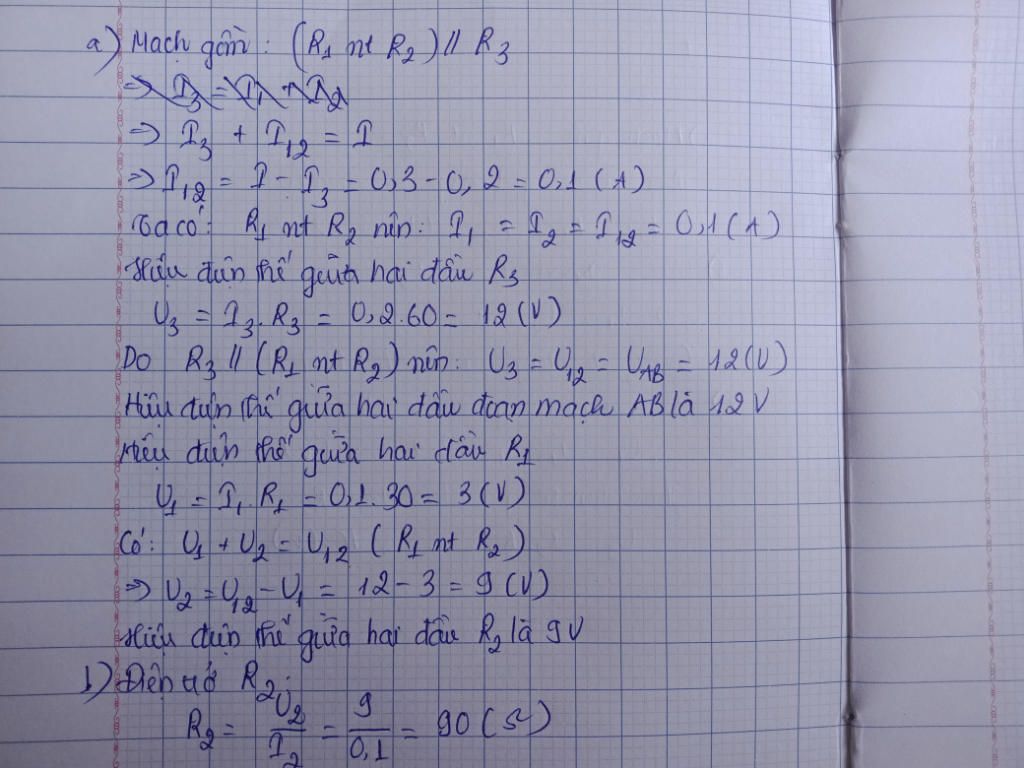 a) Mạch gồm: (R₁ nt R₂) // R₃
⇒ I₃ = I₁ + I₂
⇒ I₃ + I₁₂ = I
⇒ I₁₂ = I - I₃ = 0,3 - 0,2 = 0,1 (A)
Ta có: R₁ nt R₂ nên: I₁ = I₂ = I₁₂ = 0,1 (A)
Hiệu điện thế giữa hai đầu R₃
U₃ = I₃.R₃ = 0,2.60 = 12 (V)
Do R₃ // (R₁ nt R₂) nên: U₃ = U₁₂ = U_AB = 12 (V)
Hiệu điện thế giữa hai đầu đoạn mạch AB là 12 V
Hiệu điện thế giữa hai đầu R₁
U₁ = I₁.R₁ = 0,1.30 = 3 (V)
Có: U₁ + U₂ = U₁₂ (R₁ nt R₂)
⇒ U₂ = U₁₂ - U₁ = 12 - 3 = 9 (V)
Hiệu điện thế giữa hai đầu R₂ là 9V
b) Điện trở R₂:
R₂ = U₂/I₂ = 9/0,1 = 90 (Ω)